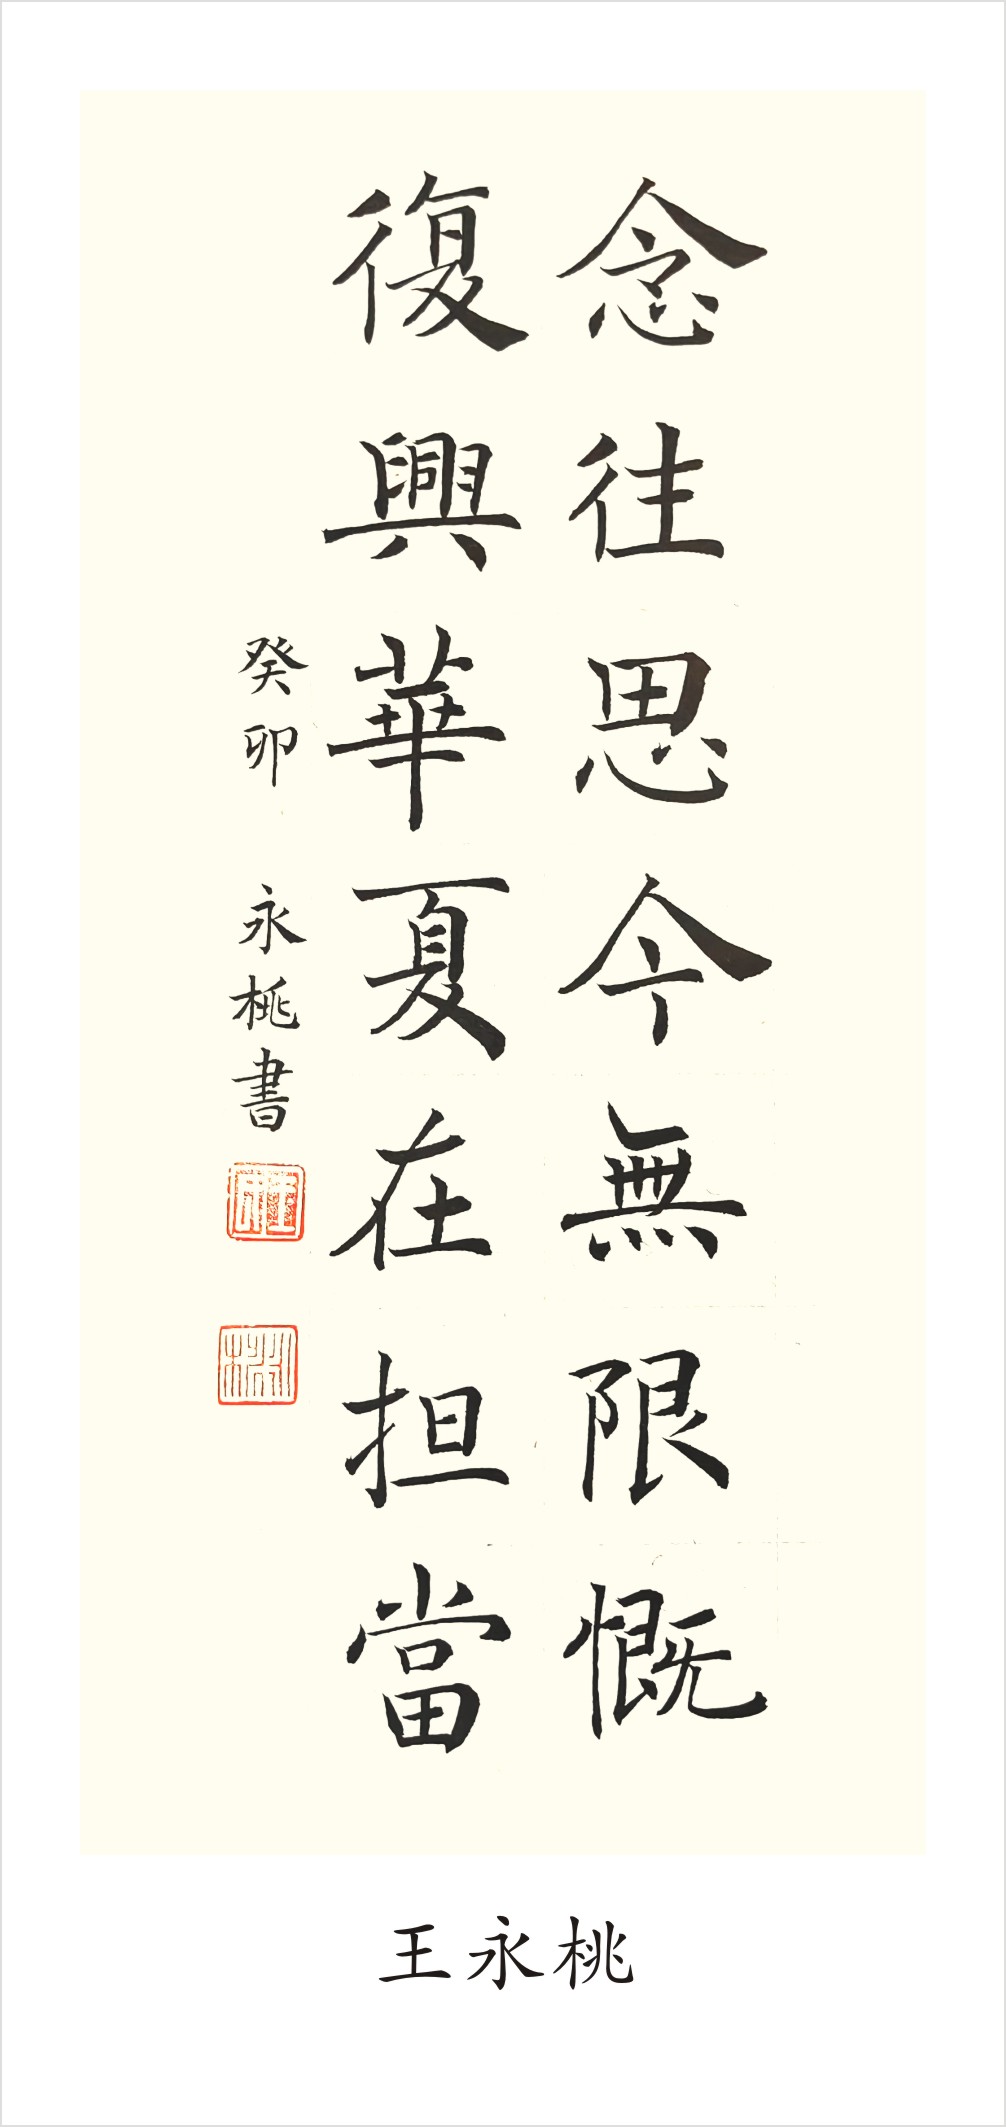 念往思今無限慨
復興華夏在担當
癸卯 永桃書
王永桃